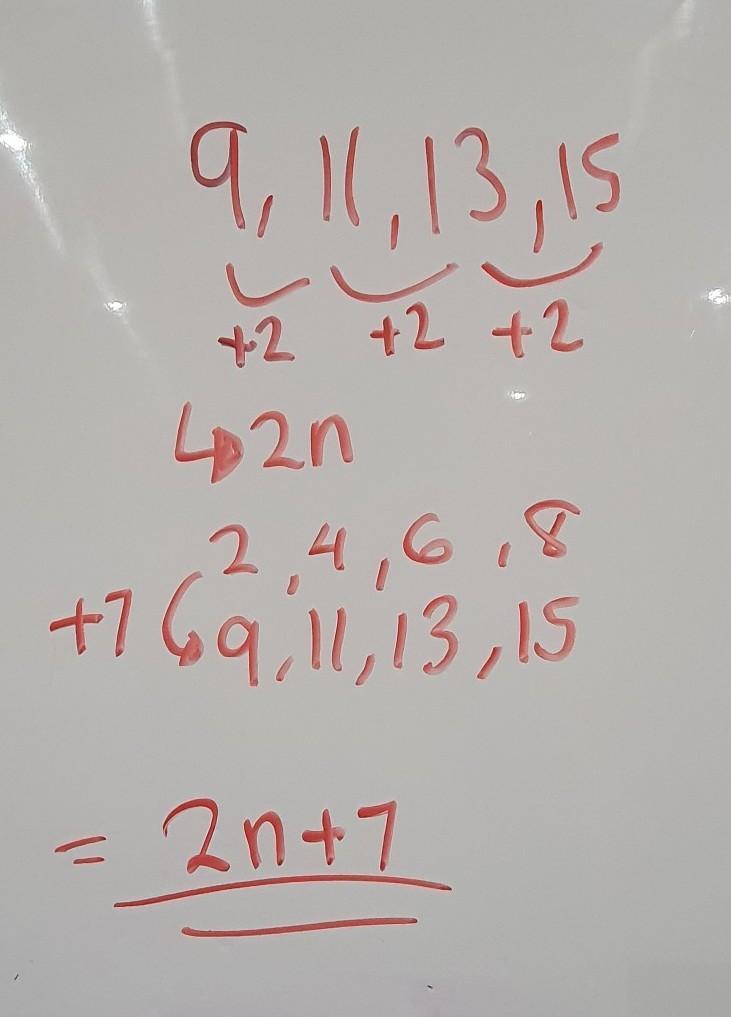 9, 11, 13, 15
+2 +2 +2
↳ 2n
2, 4, 6, 8
+7 9, 11, 13, 15
= 2n+7